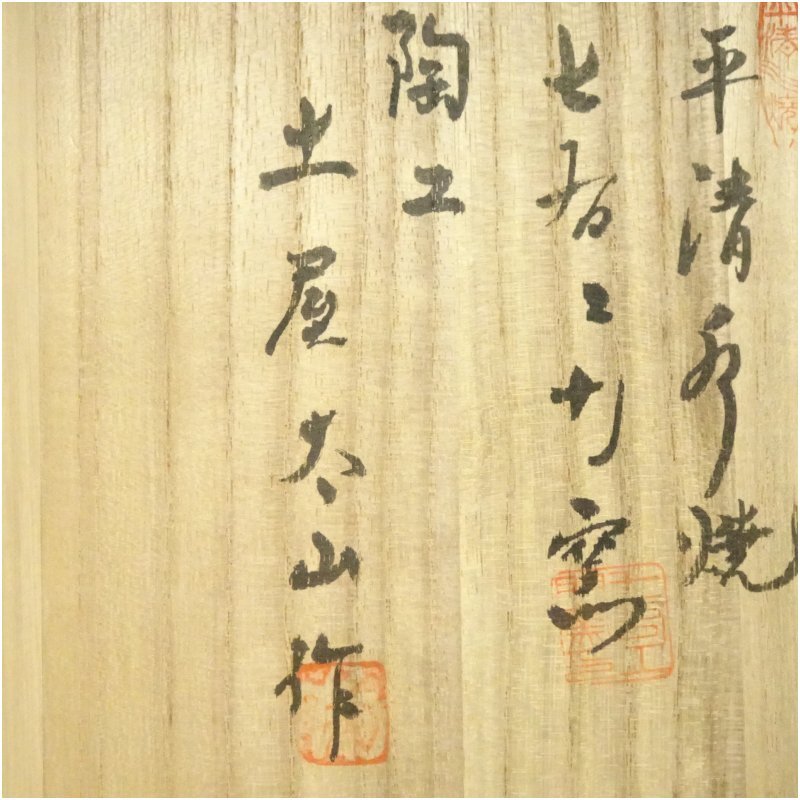 平清水焼
七右エ門窯
陶工
土屋太山作